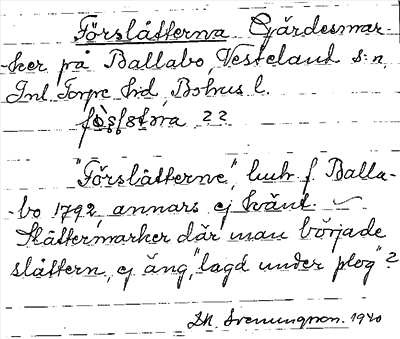 Förslåtterna Gärdesmar-
-ker på Ballabo, Vesteland s:n,
Inl. Torpe hd, Bohus l.
??
"Förslåtterne", huh f. Balla-
-bo 1792, annars ej känt.
Slåttermarker där man började
slåttern, ej äng, "lagd under plog"?
1940